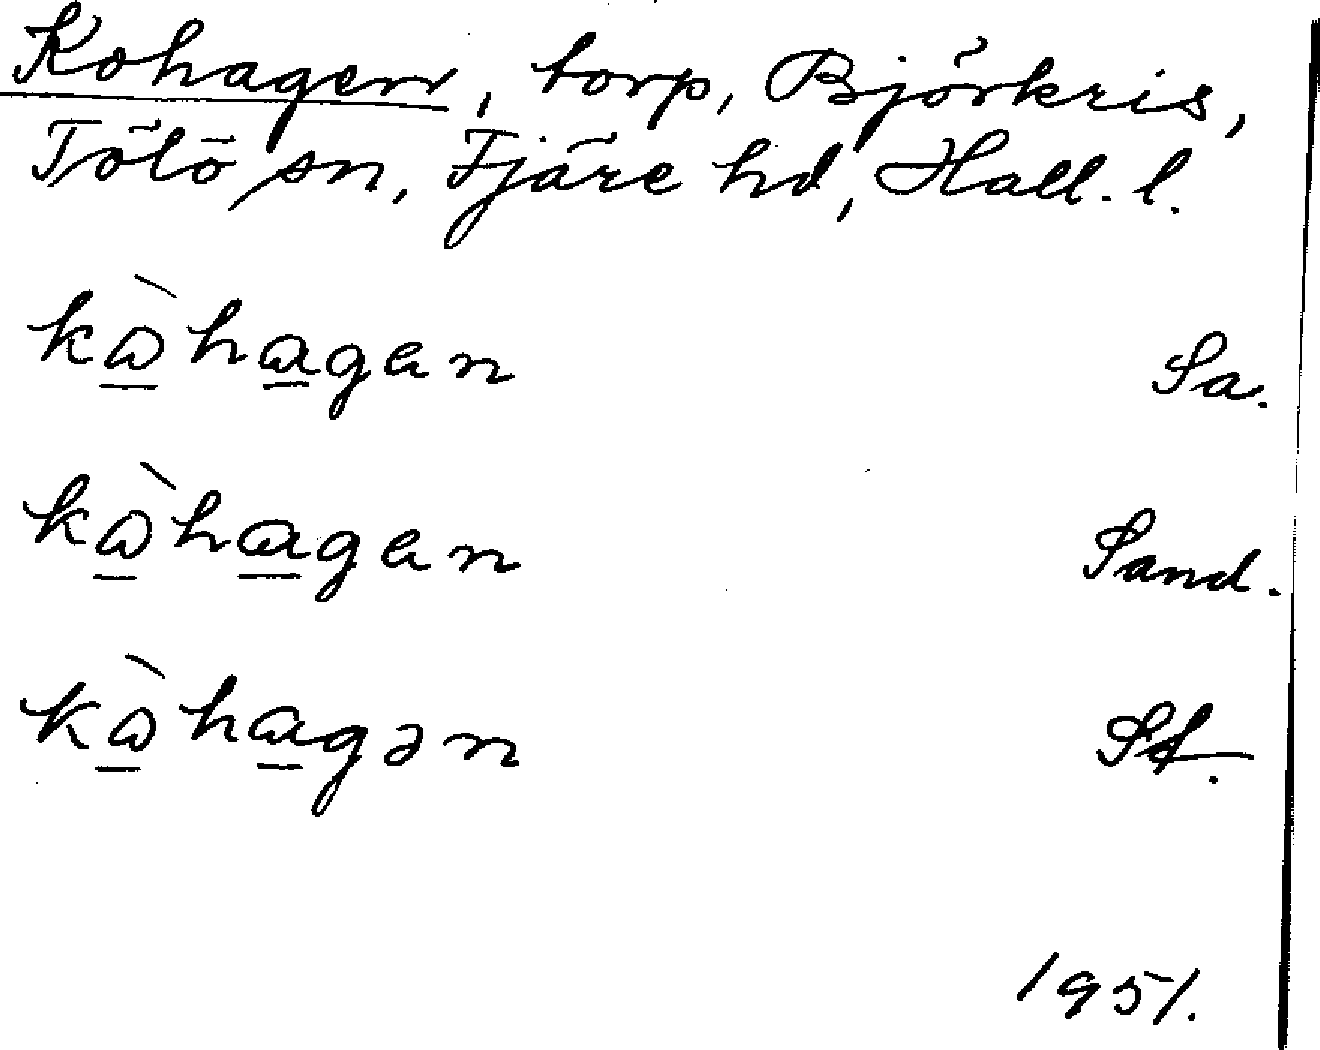 Kohagen, torp, Björkris,
Tölö sn, Fjäre hd, Hall. l.
kòhagen Sa.
kòhagen Sand.
kòhagən St.
1951.